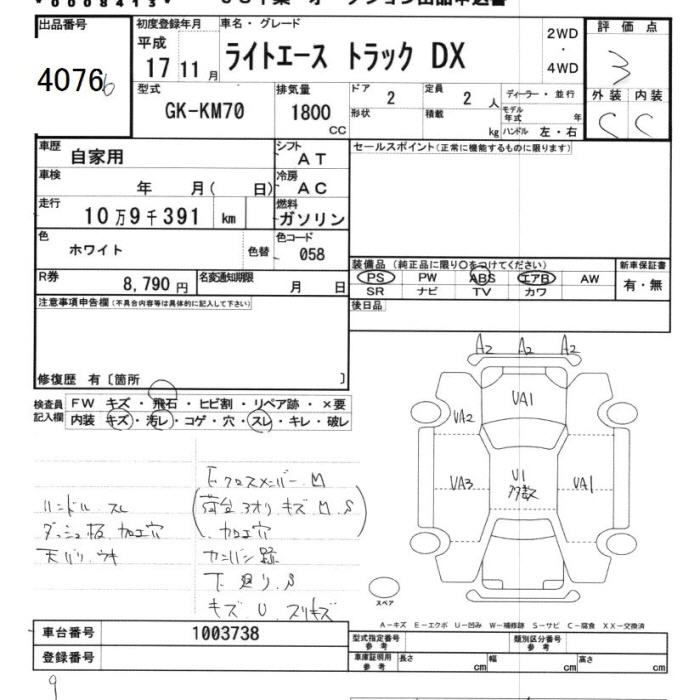 出品番号
4076
初度登録年月
平成
17 11 月
車名・グレード
ライトエース トラック DX
2WD
・
4WD
評価点
3
外装 内装
C C
型式
GK-KM70
排気量
1800
CC
ドア 2
形状
定員 2 人
積載 kg
ディーラー・並行
モデル年式 年
ハンドル 左・右
車歴
自家用
シフト
AT
車検
年 月( 日)
冷房
AC
走行
10万9千391 km
燃料
ガソリン
色
ホワイト
色替
色コード
058
R券
8,790円
名変通知期限
月 日
セールスポイント(正常に機能するものに限ります)
装備品(純正品に限り○をつけてください)
PS PW ABS エアB AW
SR ナビ TV カワ
新車保証書
有・無
後日品
注意事項申告欄(不具合内容等は具体的に記入して下さい)
修復歴 有〔箇所 〕
検査員記入欄
FW キズ・飛石・ヒビ割・リペア跡・×要
内装 キズ・汚レ・コゲ・穴・スレ・キレ・破レ
ハンドル スレ
ダッシュ板 加工穴
天バリ ウキ
クロスメンバー M
荷台 アオリ キズ.M.S
加工穴
カンバン跡
下廻り.S
キズ U スリキズ
A2 A2 A2
UA1
UA2
UA3
U1
多数
UA1
スペア
A-キズ E-エクボ U-凹み W-補修跡 S-サビ C-腐食 XX-交換済
車台番号
1003738
登録番号
型式指定番号
参考
類別区分番号
参考
車庫証明用
参考
長さ cm
幅 cm
高さ cm